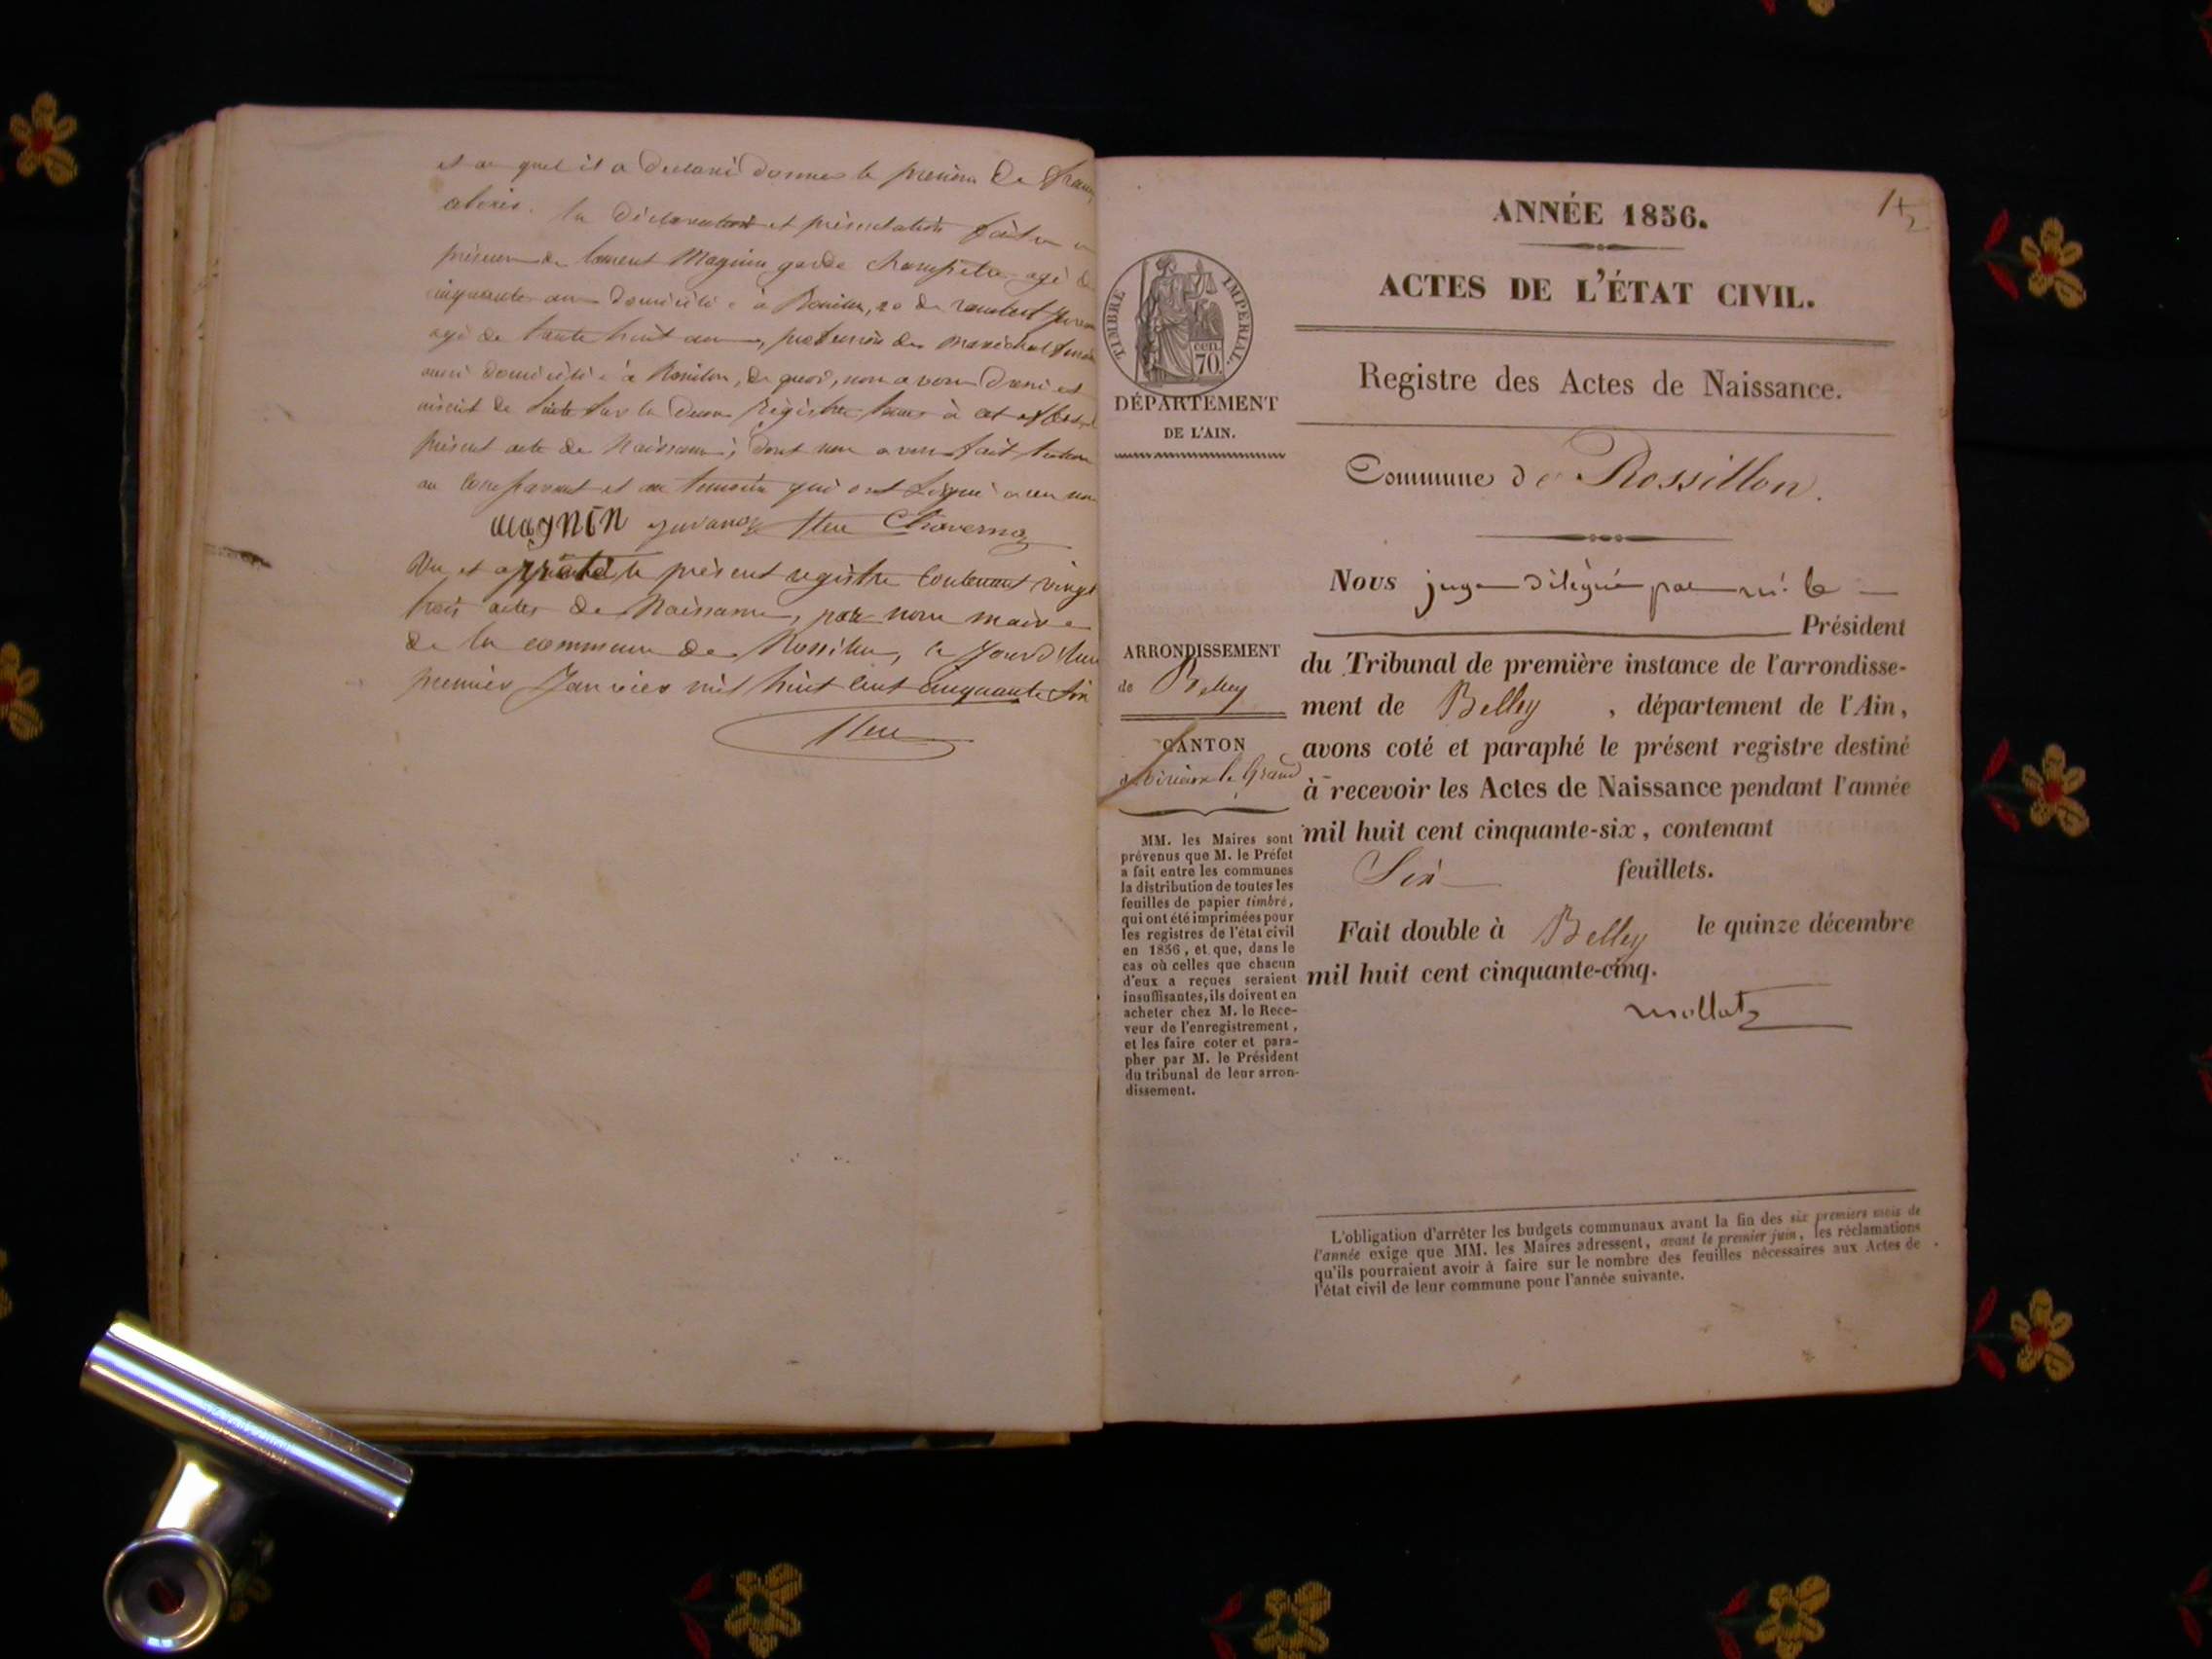 et au quel il a déclaré donner le prénom de
La déclaration et présentation faite en
présence de Laurent Magnin garde champêtre agé de
cinquante ans domicilié à Rossillon, 2o de
agé de trente huit ans, profession de maréchal
aussi domicilié à Rossillon, de quoi, nous avons dressé et
inscrit de suite sur les deux registres tenus à cet effet
présent acte de Naissance, dont nous avons fait lecture
au comparant et au témoins qui ont signé avec nous
MAGNIN
Vu et arrêté le présent registre contenant vingt
trois actes de Naissance, par nous maire
de la commune de Rossillon, le jourd'hui
premier Janvier mil huit cent cinquante six
ANNÉE 1856.
ACTES DE L'ÉTAT CIVIL.
Registre des Actes de Naissance.
TIMBRE IMPÉRIAL.
cen. 70
DÉPARTEMENT
DE L'AIN.
Commune de Rossillon.
Nous juge délégué par mr. le
Président
du Tribunal de première instance de l'arrondisse-
ment de Belley , département de l'Ain,
avons coté et paraphé le présent registre destiné
à recevoir les Actes de Naissance pendant l'année
mil huit cent cinquante-six, contenant
Six feuillets.
Fait double à Belley le quinze décembre
mil huit cent cinquante-cinq.
ARRONDISSEMENT
de Belley
CANTON
de Virieux le Grand
MM. les Maires sont
prévenus que M. le Préfet
a fait entre les communes
la distribution de toutes les
feuilles de papier timbré,
qui ont été imprimées pour
les registres de l'état civil
en 1856, et que, dans le
cas où celles que chacun
d'eux a reçues seraient
insuffisantes, ils doivent en
acheter chez M. le Rece-
veur de l'enregistrement,
et les faire coter et para-
pher par M. le Président
du tribunal de leur arron-
dissement.
L'obligation d'arrêter les budgets communaux avant la fin des six premiers mois de
l'année exige que MM. les Maires adressent, avant le premier juin, les réclamations
qu'ils pourraient avoir à faire sur le nombre des feuilles nécessaires aux Actes de
l'état civil de leur commune pour l'année suivante.